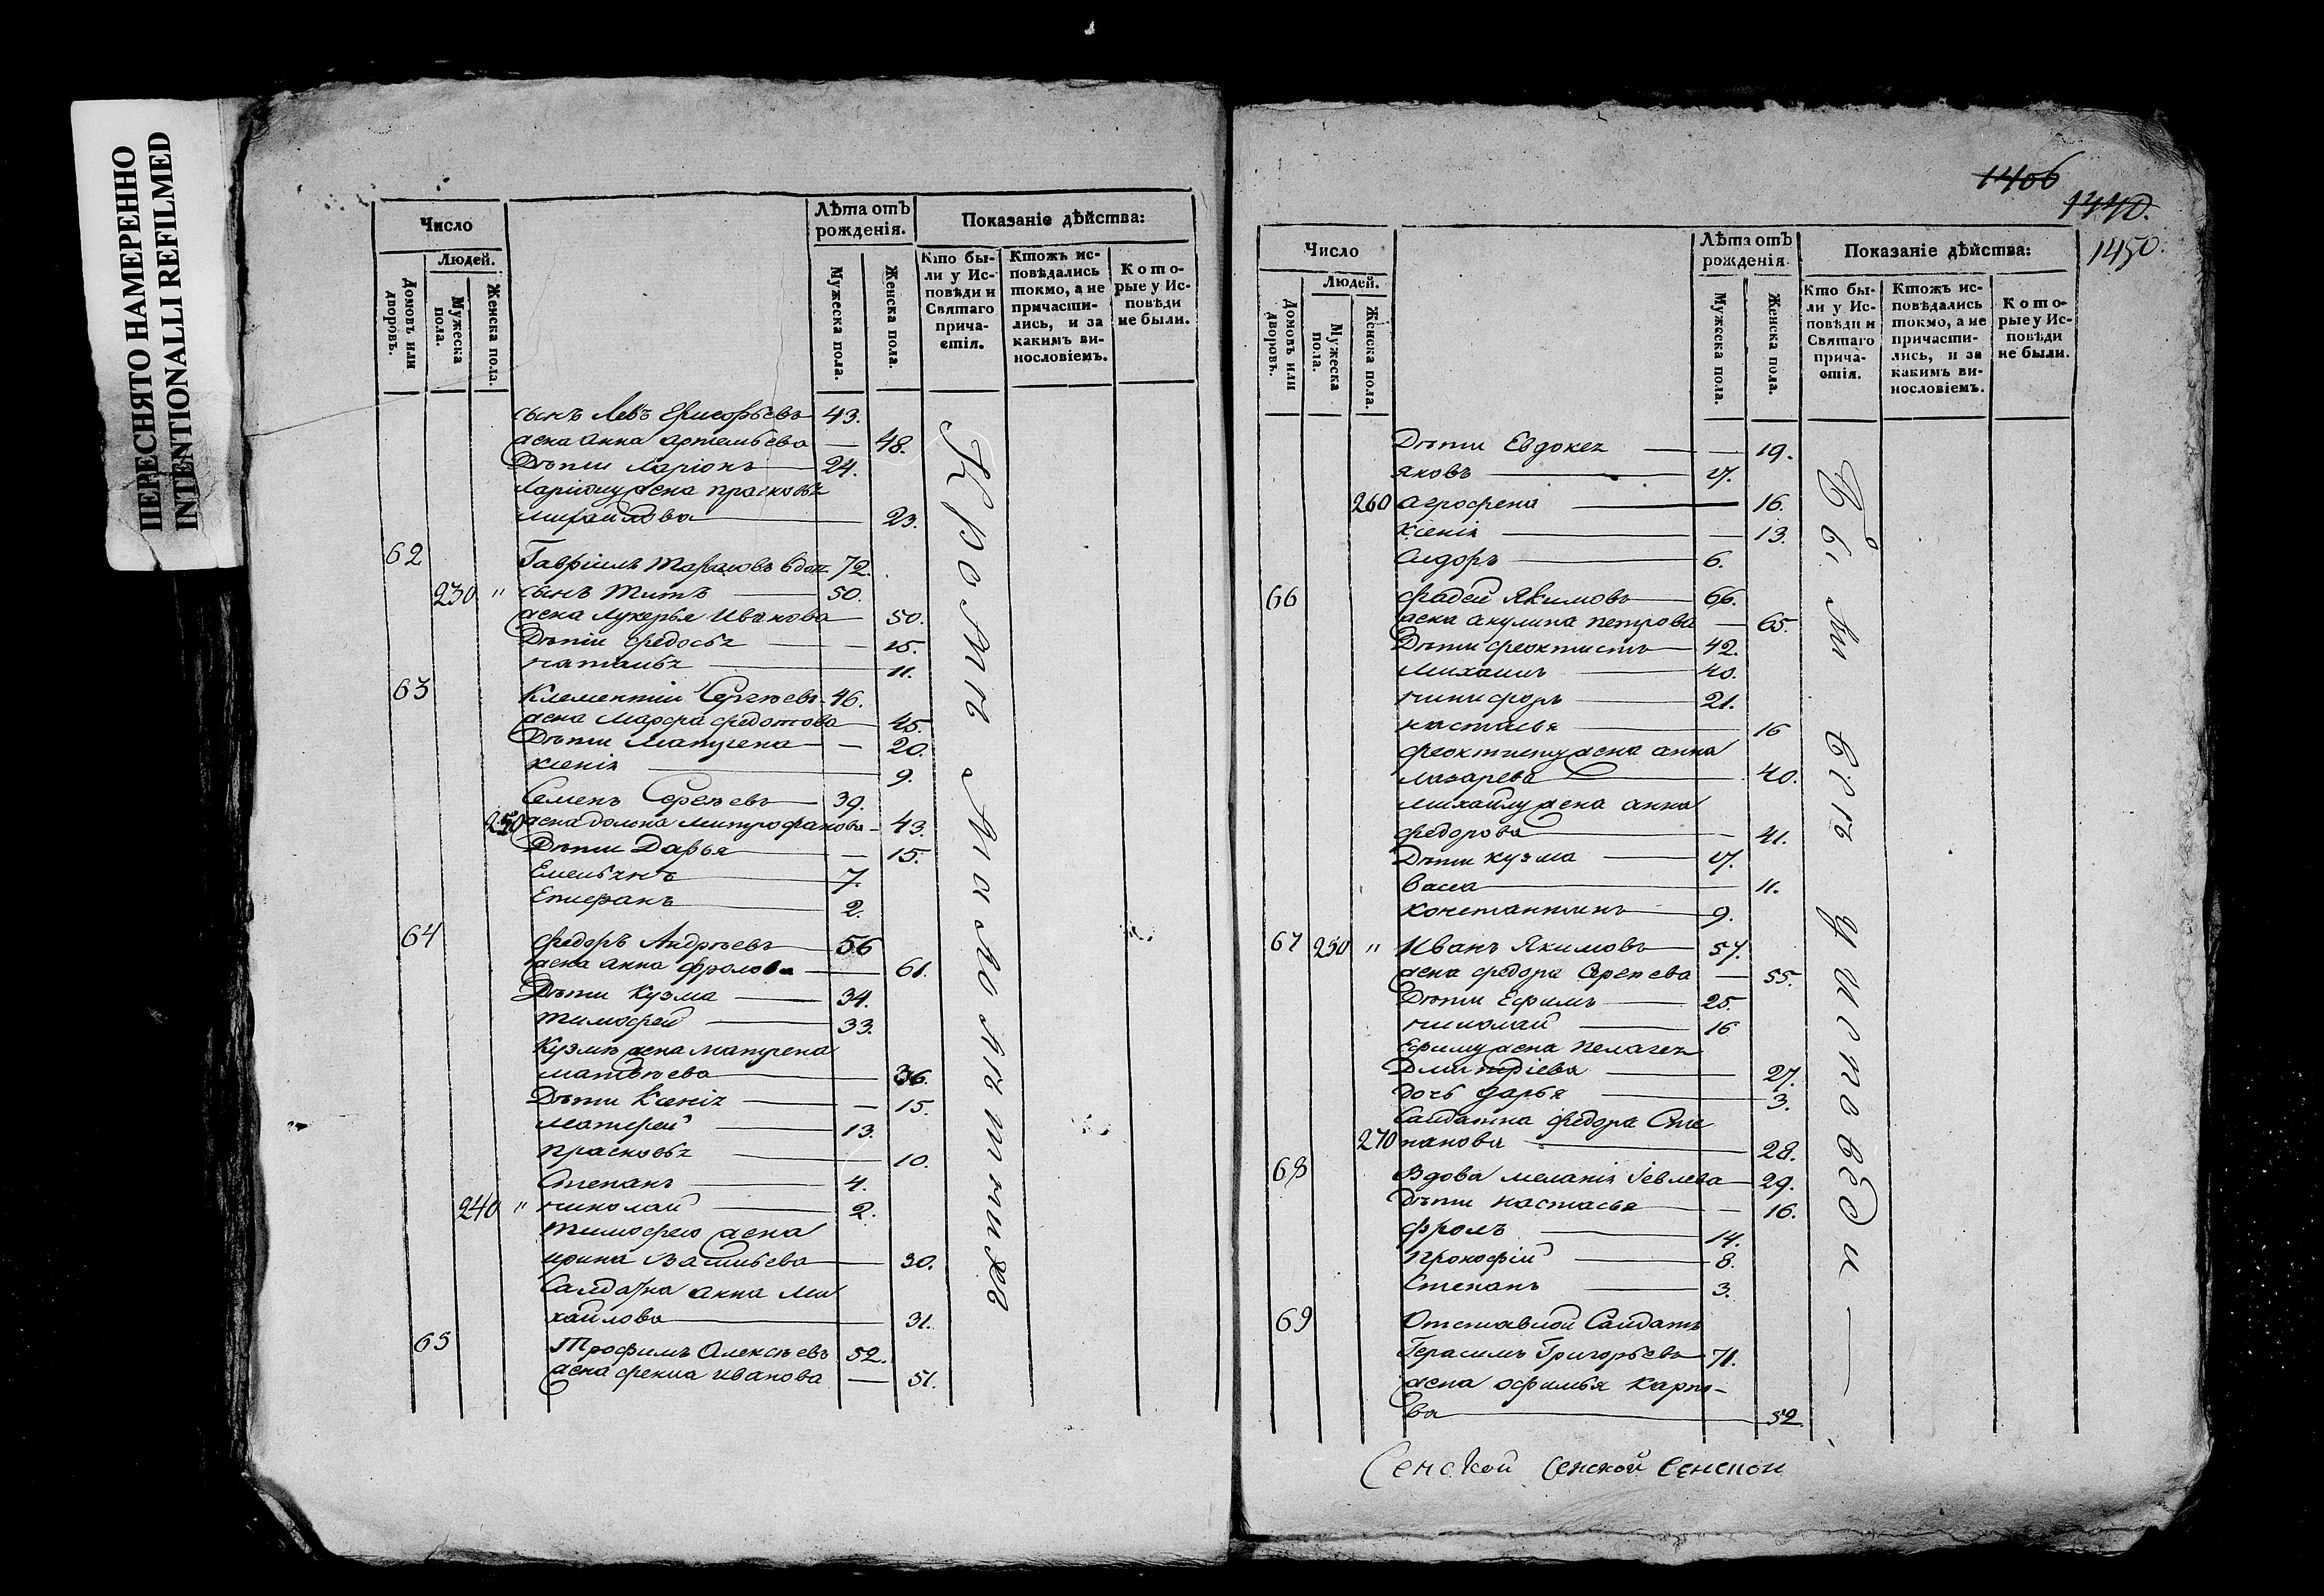 ПЕРЕСНЯТО НАМЕРЕННО
INTENTIONALLI REFILMED
Число
Лѣта отъ рожденія.
Показаніе дѣйства:
Людей.
Домовъ или дворовъ.
Мужеска пола.
Женска пола.
Мужеска пола.
Женска пола.
Кто бы-
ли у Ис-
повѣди и
Святаго
прича-
стія.
Ктожъ ис-
повѣдались
токмо, а не
причасти-
лись, и за
какимъ ви-
нословіемъ.
Кото-
рые у Ис-
повѣди
не были.
сынъ Левъ Григорьевъ 43.
жена анна артемьева — 48.
Дѣти Ларіонъ 24.
Ларіону жена прасковья
михайлова 23.
62 Гавріилъ Тарасовъ вдов. 72.
230 " сынъ Титъ 50.
жена лукерья Иванова 50.
Дѣти федосья — 15.
наталья 11.
63 Клементій Сергѣевъ 46.
жена Марфа федотова 45.
Дѣти Матрена — 20.
ксенія 9.
Семенъ Сергѣевъ 39.
250 жена домна митрофанова 43.
Дѣти Дарья — 15.
Емельянъ 7.
Епифанъ 2.
64 федоръ Андрѣевъ 56
жена анна фролова 61.
Дѣти Кузма 34.
тимофей 33.
Кузмѣ жена матрена
матвѣева 36.
Дѣти Ксенія — 15.
матфей 13.
прасковья 10.
Степанъ 4.
240 " николай 2.
тимофею жена
ирина Васильева 30.
Салдатка анна Ми
хайлова 31.
65 Трофимъ Алексѣевъ 52.
жена фекла иванова — 51.
Кромѣ Малолѣтныхъ
1406
1440.
1450.
Число
Лѣта отъ рожденія.
Показаніе дѣйства:
Людей.
Домовъ или дворовъ.
Мужеска пола.
Женска пола.
Мужеска пола.
Женска пола.
Кто бы-
ли у Ис-
повѣди и
Святаго
прича-
стія.
Ктожъ ис-
повѣдались
токмо, а не
причасти-
лись, и за
какимъ ви-
нословіемъ.
Кото-
рые у Ис-
повѣди
не были.
Дѣти Евдокея — 19.
яковъ 17.
260 агрофена 16.
Ксенія — 13.
Сидоръ 6.
66 фадей Якимовъ 66.
жена акулина петрова — 65.
Дѣти феоктистъ 42.
михаилъ 40.
никифоръ 21.
настасья 16
феоктисту жена анна
лазарева 40.
михайлу жена анна
федорова 41.
Дѣти кузма 17.
Васса 11.
константинъ 9.
67 250 " Иванъ Якимовъ 57.
жена федора Сергѣева — 55.
Дѣти Ефимъ 25.
николай 16
Ефиму жена пелагея
Дмитріева 27.
дочь дарья 3.
Салдатка федора Сте
270 панова 28.
68 Вдова меланія Іевлева 29.
Дѣти настасья — 16.
фролъ 14.
Прокофій 8.
Степанъ 3.
69 Отставной Салдатъ
Герасимъ Григорьевъ 71.
жена офимья карпо-
ва 52.
Были всѣ у исповѣди —
Сенской Сенской Сенской